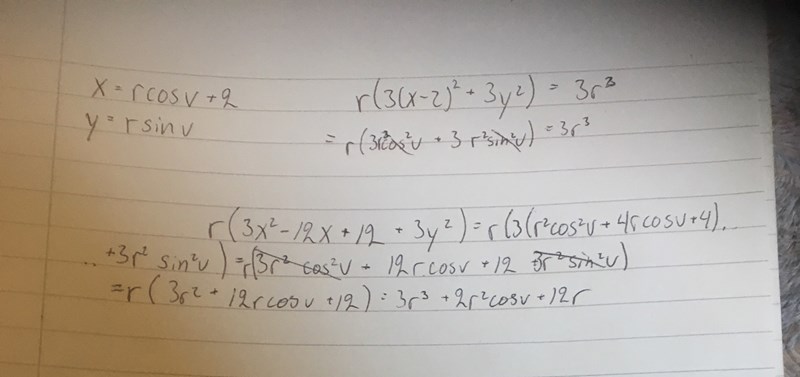 x = rcosv + 2
y = rsinv
r(3(x-2)² + 3y²) = 3r³
= r(3r²cos²v + 3r²sin²v) = 3r³
r(3x² - 12x + 12 + 3y²) = r(3(r²cos²v + 4rcosv + 4)..
..+3r² sin²v) = r(3r² cos²v + 12rcosv + 12 3r² sin²v)
= r(3r² + 12rcosv + 12) = 3r³ + 2r²cosv + 12r